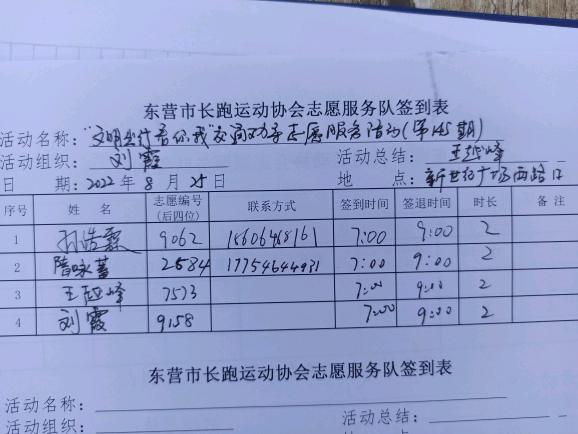 东营市长跑运动协会志愿服务队签到表
活动名称："文明出行 吾你我"交通劝导志愿服务活动(第145期)
活动组织：刘霞 活动总结：王延峰
日 期：2022年8月25日 地 点：新世纪广场西路口
序号 姓 名 志愿编号(后四位) 联系方式 签到时间 签退时间 时长 备 注
1 孙浩霖 9062 15606468161 7:00 9:00 2
2 隋咏蓄 2584 17754644931 7:00 9:00 2
3 王延峰 7573 7:00 9:00 2
4 刘霞 9158 7:00 9:00 2
东营市长跑运动协会志愿服务队签到表
活动名称：
活动组织： 活动总结：